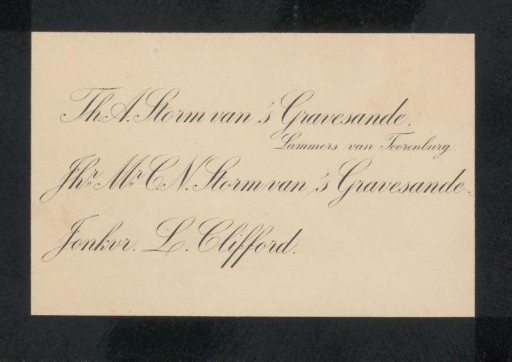 Th. A. Storm van 's Gravesande.
Lammers van Toorenburg.
Jhr. Mr. C. N. Storm van 's Gravesande.
Jonkvr. L. Clifford.